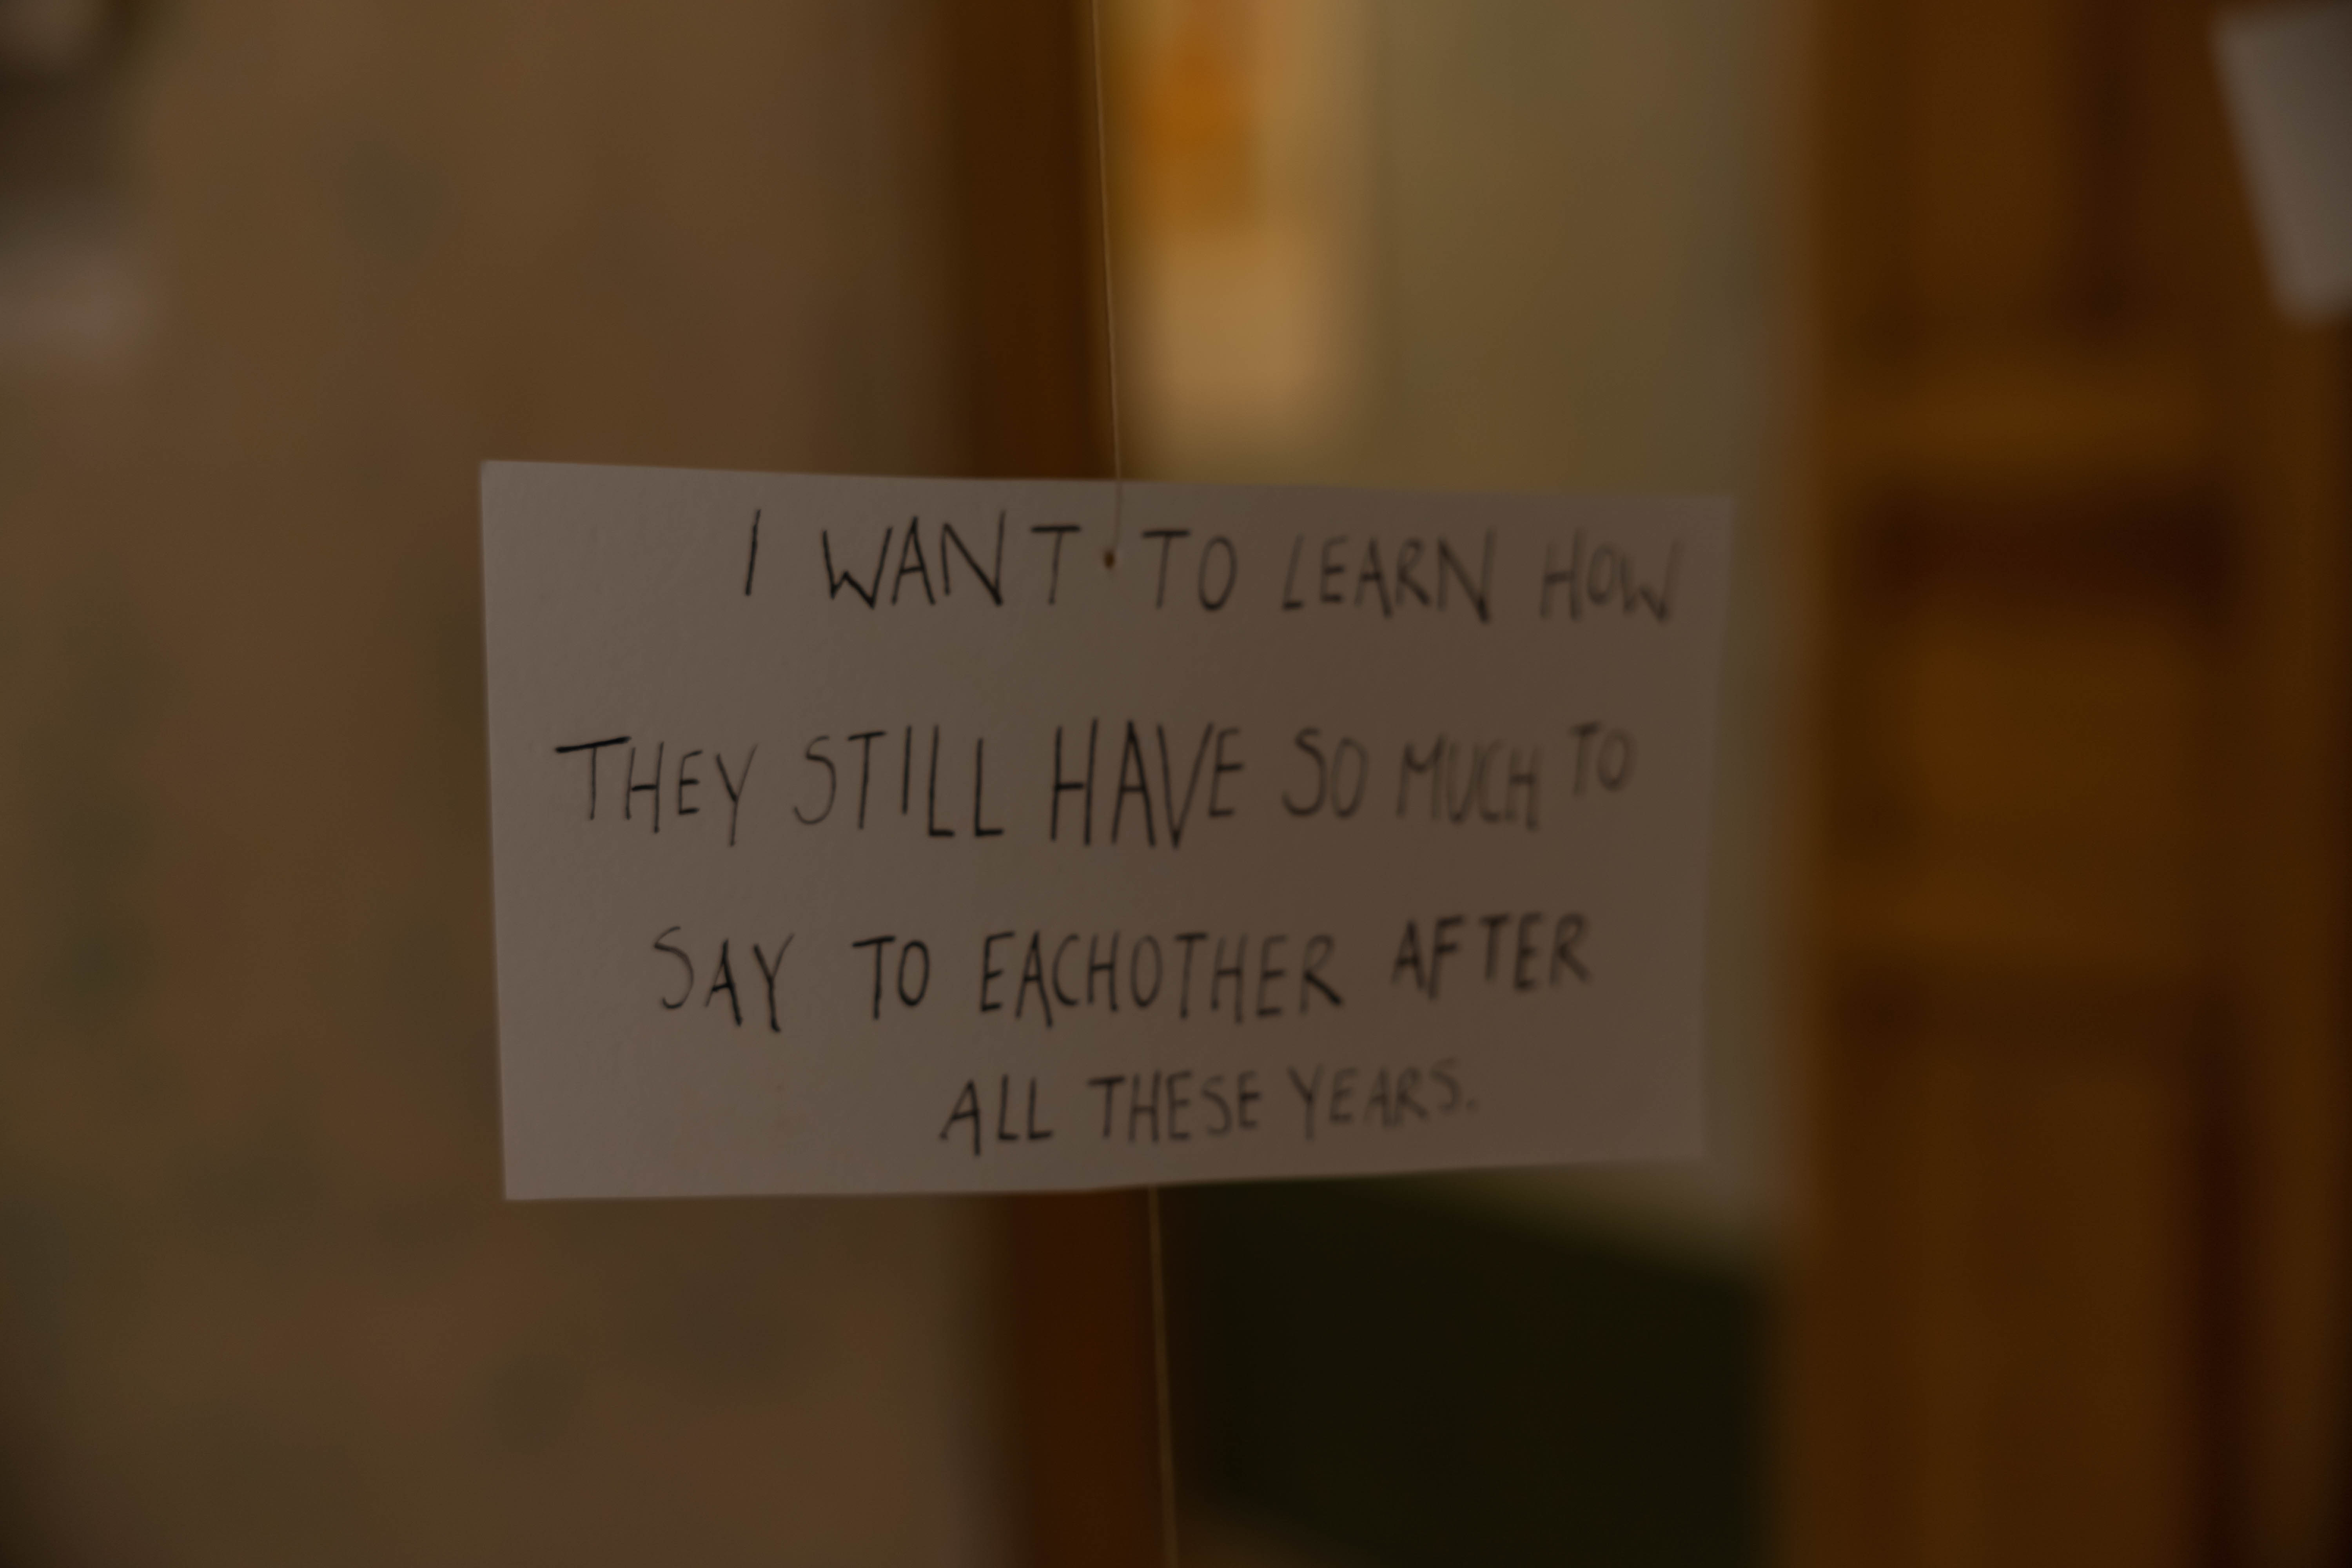 I WANT TO LEARN HOW
THEY STILL HAVE SO MUCH TO
SAY TO EACHOTHER AFTER
ALL THESE YEARS.